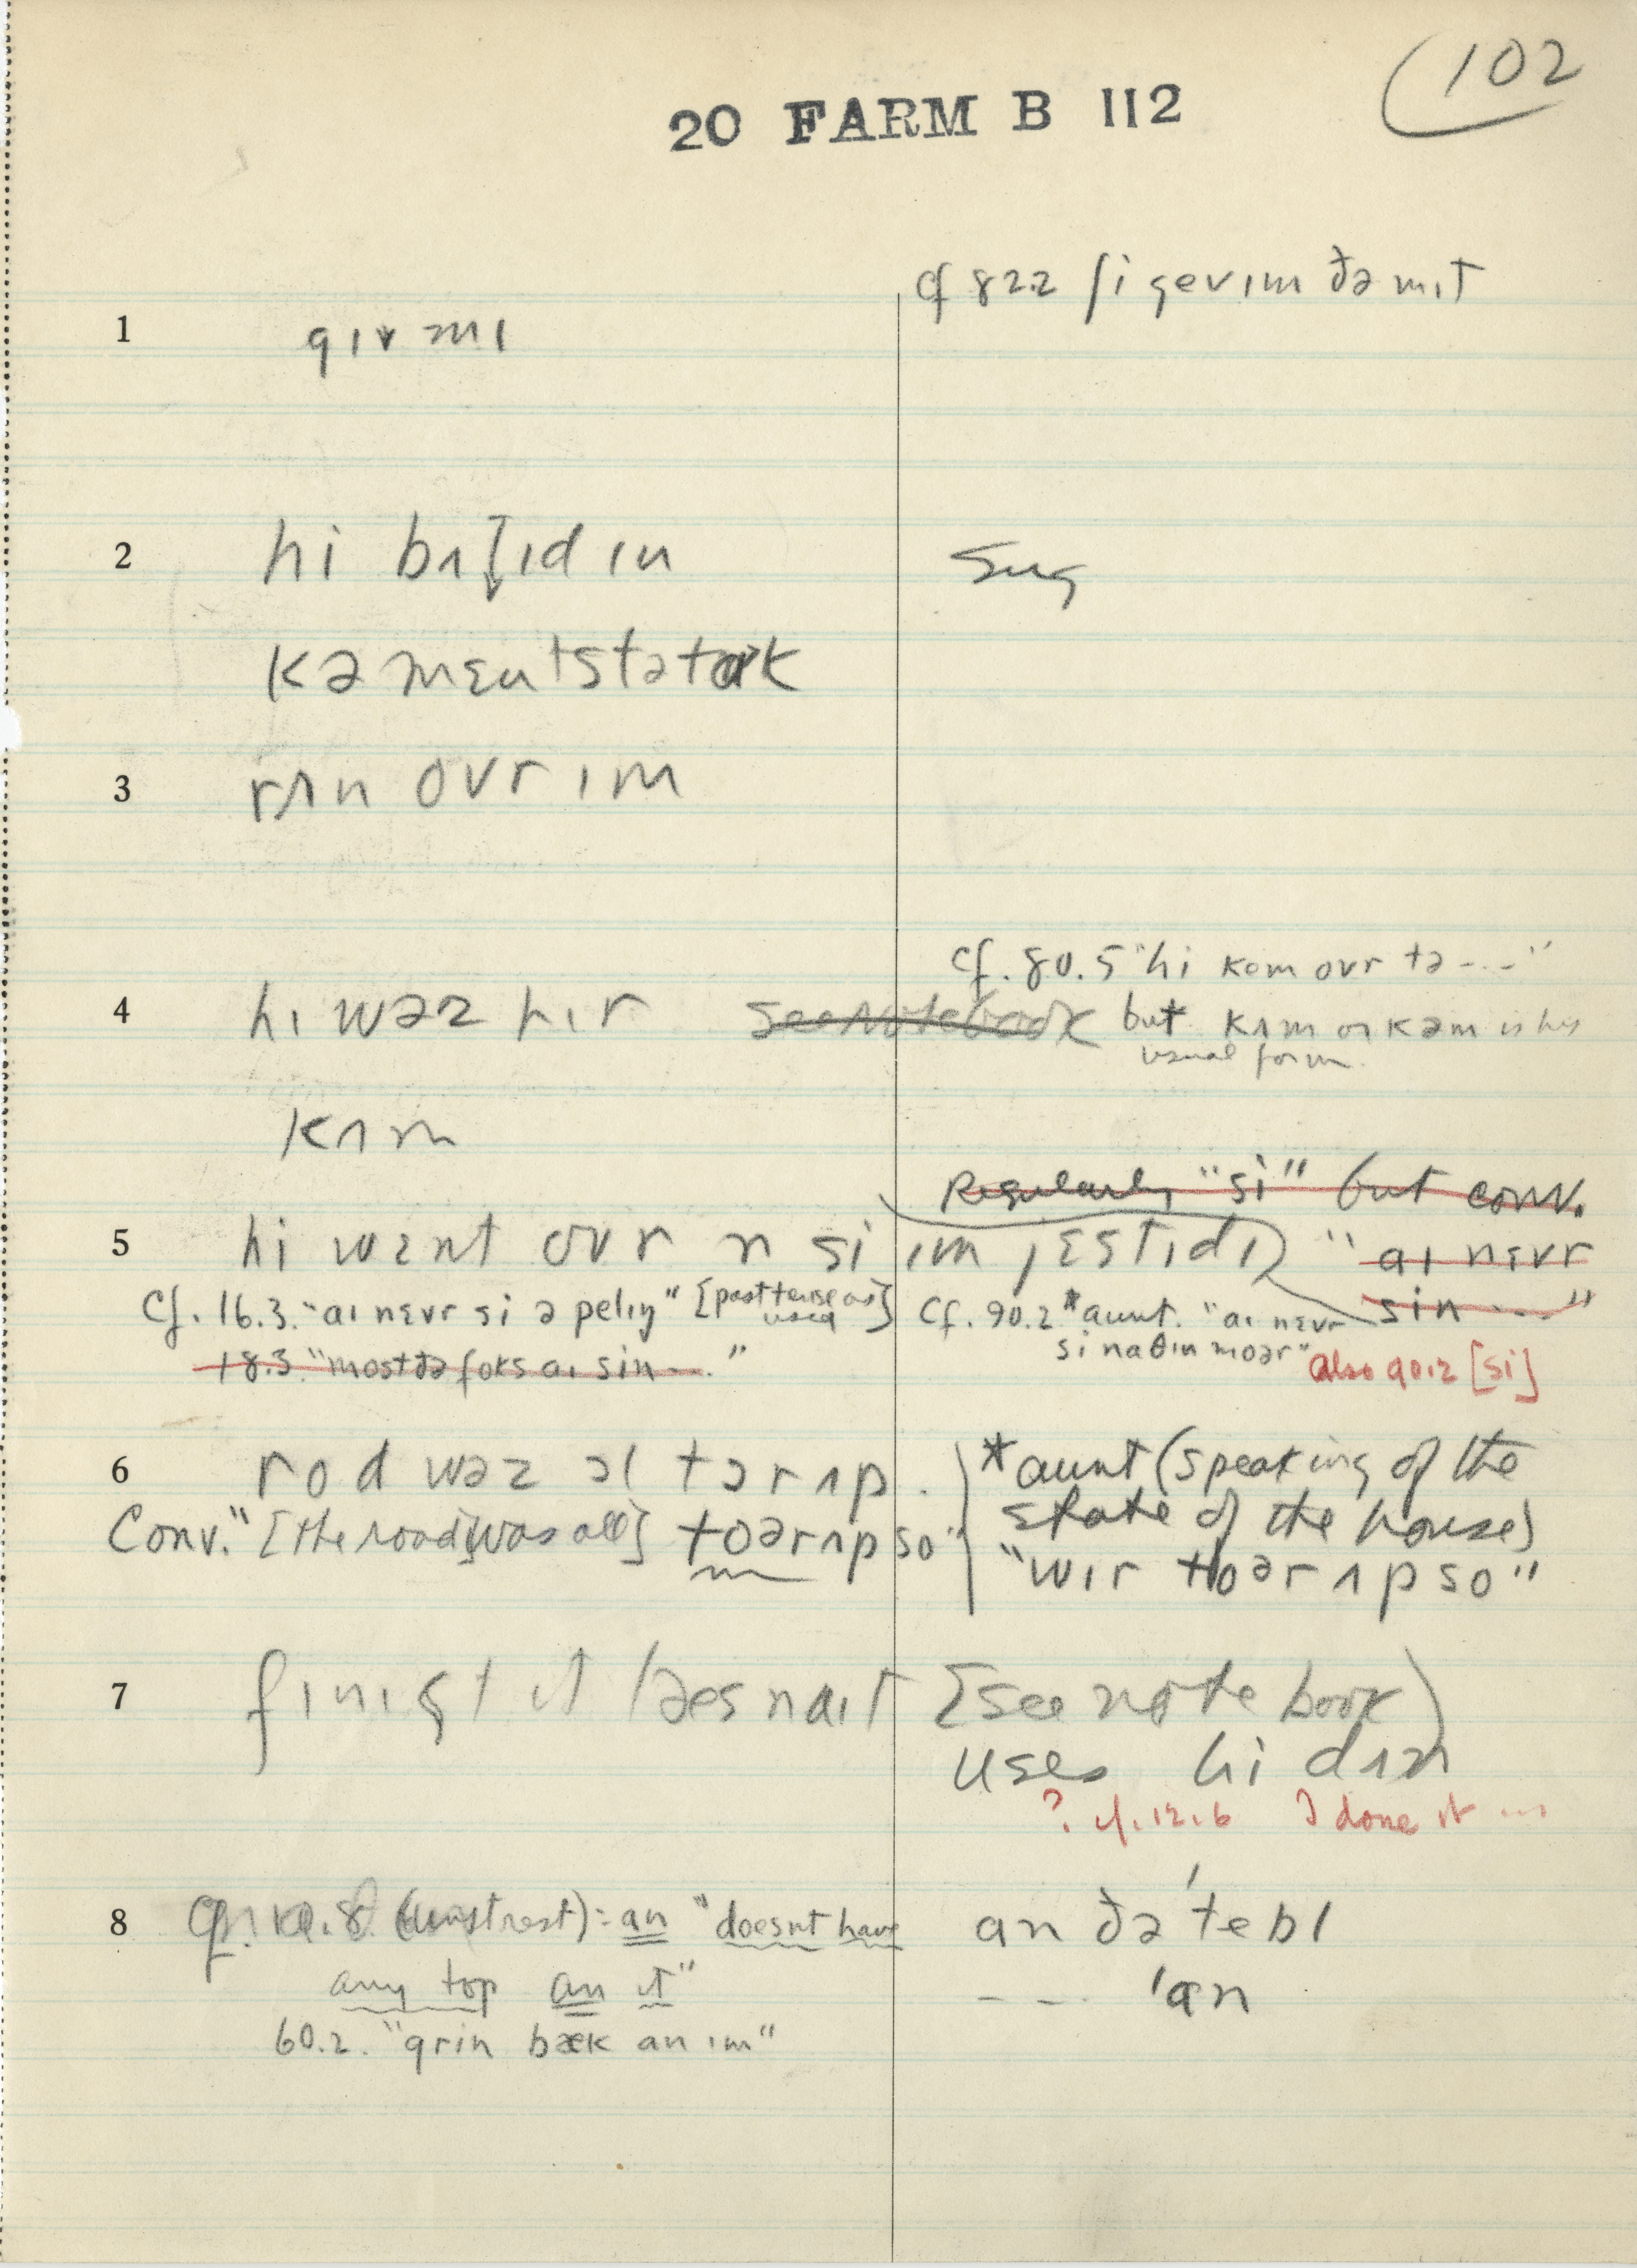 102
20 FARM B 112
cf 82.2 ʃi gev ɪm ðə mɪt
1 gɪv mɪ
2 hi bɪ in
Sug
kə mɛntstətɑrk
3 rʌn ovr ɪm
cf. 80.5 "hi kom ovr tə ---"
4 hɪ wəz hɪr see notebook but kʌm or kəm is his
usual form
kʌm
Regularly "si" but conv.
5 hi wɛnt ovr n si ɪm jɛstɪdɪ "aɪ nɛvr
sin ---"
cf. 16.3. "aɪ nɛvr si ə pelɪŋ" [past tense as used] Cf. 90.2 *aunt. "aɪ nɛvr
si naθɪn moər"
18.3 "most ðə foks aɪ sin ---." also 90.2 [si]
6 rod wəz ɔl tɔr ʌp. *aunt (speaking of the
state of the house)
Conv. "[the road] [was all] toər ʌp so" "wɪr toər ʌp so"
7 fɪnɪʃt ɪt læs naɪt [see note book)
uses hi dʌn
? cf. 12.6 I done it ...
8 (unstrest) = an "doesnt have an ðə 'tebl
any top an it" --- 'an
60.2. "grin bæk an ɪm"